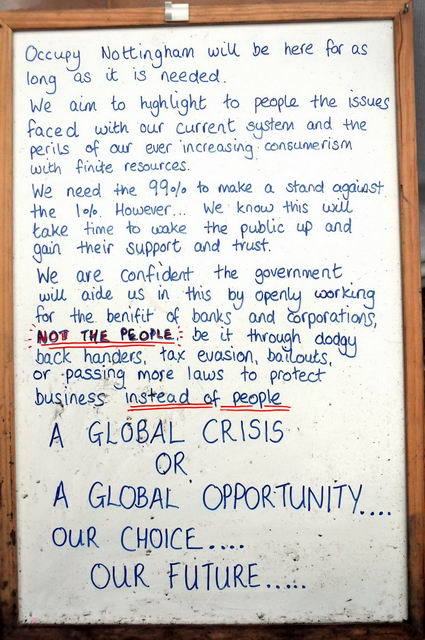 Occupy Nottingham will be here for as
long as it is needed.
We aim to highlight to people the issues
faced with our current system and the
perils of our ever increasing consumerism
with finite resources.
We need the 99% to make a stand against
the 1%. However... We know this will
take time to wake the public up and
gain their support and trust.
We are confident the government
will aide us in this by openly working
for the benifit of banks and corporations,
NOT THE PEOPLE, be it through dodgy
back handers, tax evasion, bailouts,
or passing more laws to protect
business instead of people
A GLOBAL CRISIS
OR
A GLOBAL OPPORTUNITY....
OUR CHOICE....
OUR FUTURE.....